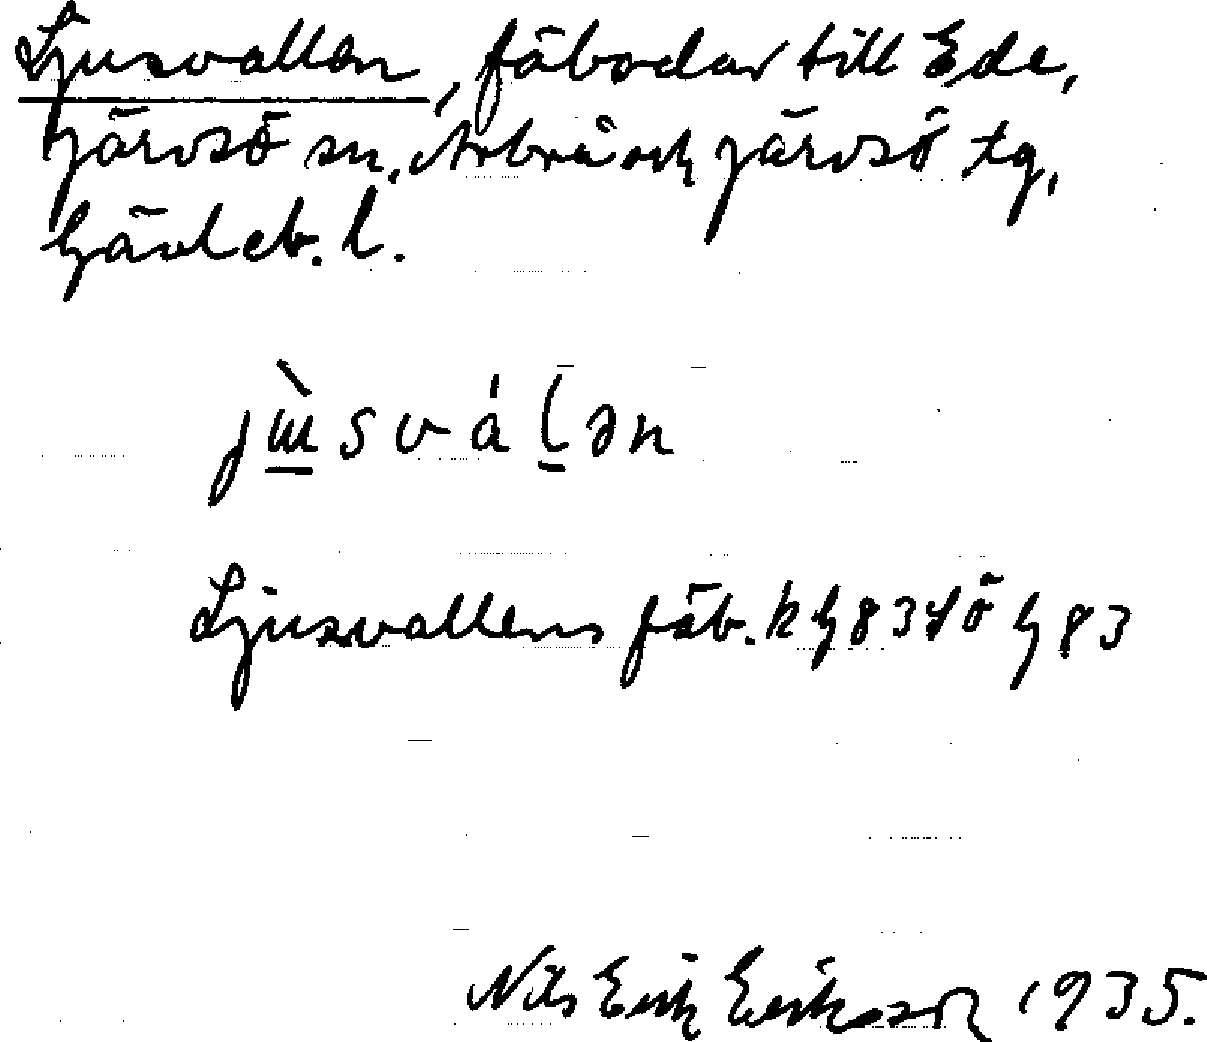 Ljusvallen, fäbodar till Ede,
Järvsö sn, Arbrå och Järvsö tg,
Gävleb. l.
jɯ̀sválən
Ljusvallens fäb. k G 83 SÖ G 83
Nils Erik Eriksson 1935.